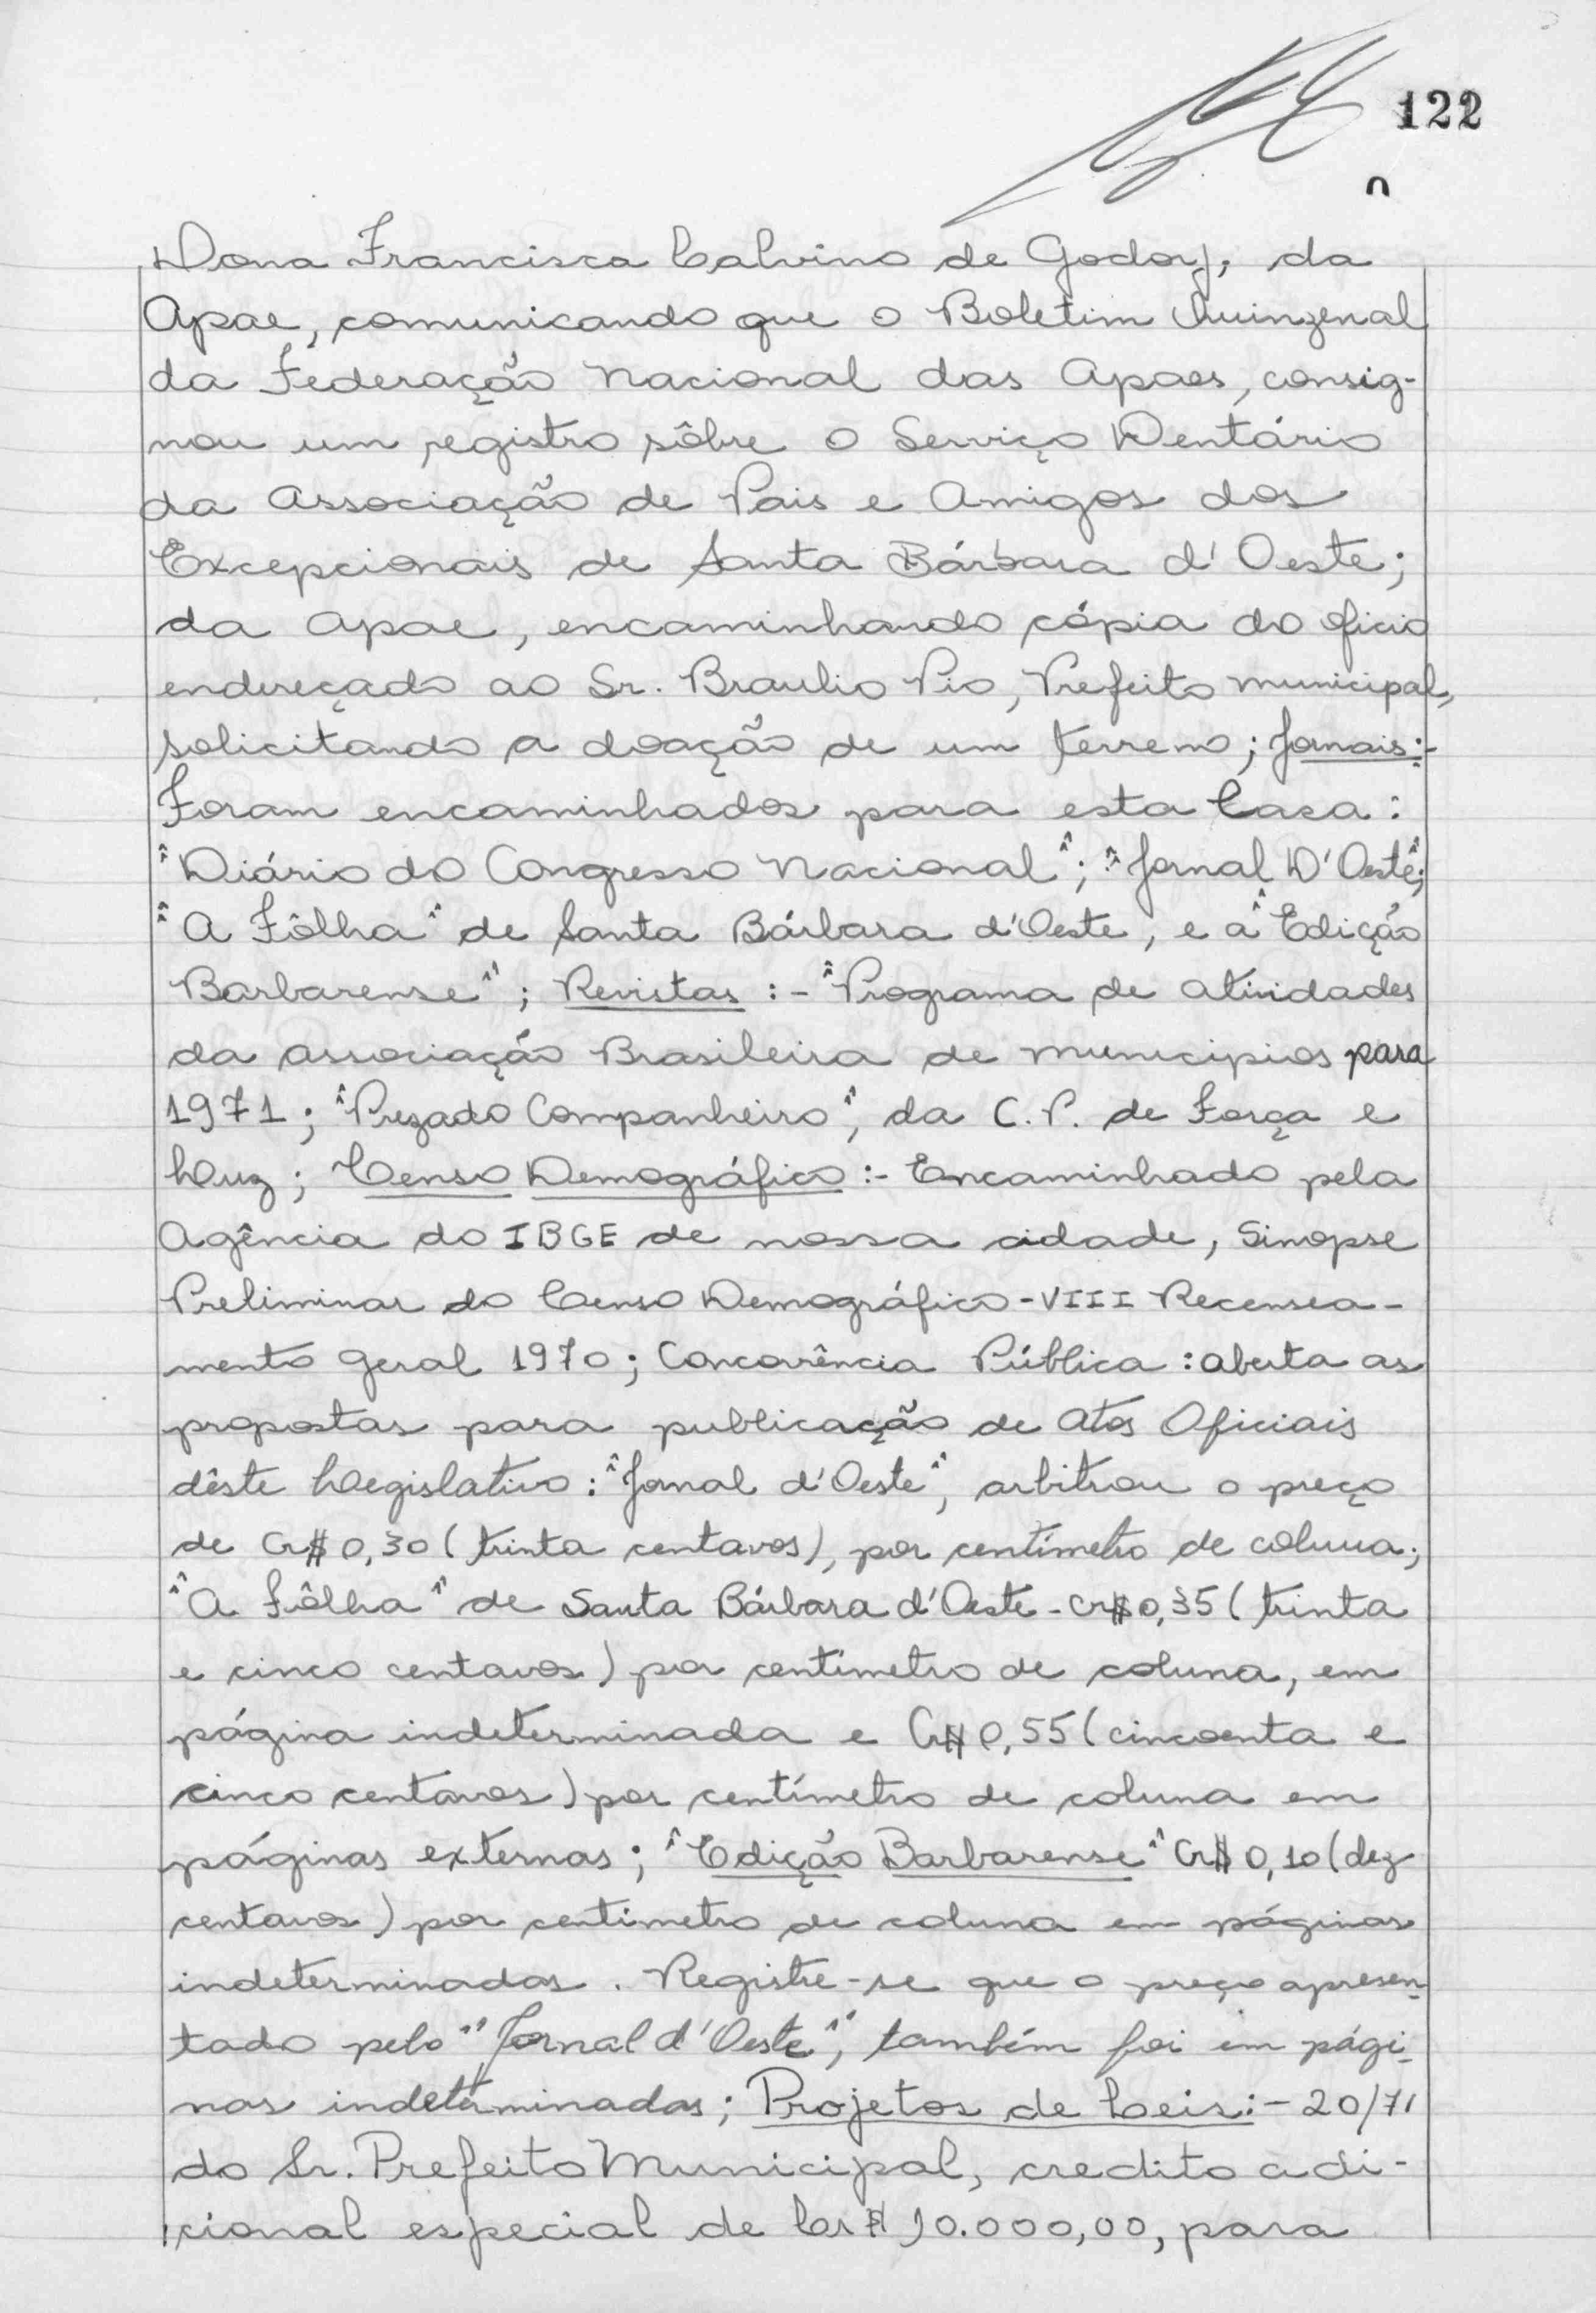 122
Dona Francisca Calvino de Godoy, da
Apae, comunicando que o Boletim Quinzenal
da Federação Nacional das Apaes, consig-
nou um registro sôbre o Serviço Dentário
da Associação de Pais e Amigos dos
Excepcionais de Santa Bárbara d'Oeste;
da Apae, encaminhando cópia do oficio
endereçado ao Sr. Braulio Pio, Prefeito Municipal,
solicitando a doação de um terreno; Jornais:-
Foram encaminhados para esta Casa:
"Diário do Congresso Nacional"; "Jornal D'Oeste";
"A Fôlha" de Santa Bárbara d'Oeste, e a "Edição
Barbarense"; Revistas:- "Programa de atividades
da Associação Brasileira de Municipios para
1971; "Prezado Companheiro", da C.P. de Força e
Luz; Censo Demográfico:- Encaminhado pela
Agência do IBGE de nossa cidade, Sinopse
Preliminar do Censo Demográfico-VIII Recensea-
mento Geral 1970; Concorrência Pública: aberta as
propostas para publicação de Atos Oficiais
dêste Legislativo: "Jornal d'Oeste", arbitrou o preço
de Cr$ 0,30 (trinta centavos), por centímetro de coluna;
"A Fôlha" de Santa Bárbara d'Oeste - Cr$ 0,35 (trinta
e cinco centavos) por centímetro de coluna, em
página indeterminada e Cr$ 0,55 (cincoenta e
cinco centavos) por centímetro de coluna em
páginas externas; "Edição Barbarense" Cr$ 0,10 (dez
centavos) por centimetro de coluna em páginas
indeterminadas. Registre-se que o preço apresen-
tado pelo "Jornal d'Oeste", também foi em pági-
nas indeterminadas; Projetos de Leis:- 20/71
do Sr. Prefeito Municipal, credito adi-
cional especial de Cr$ 10.000,00, para